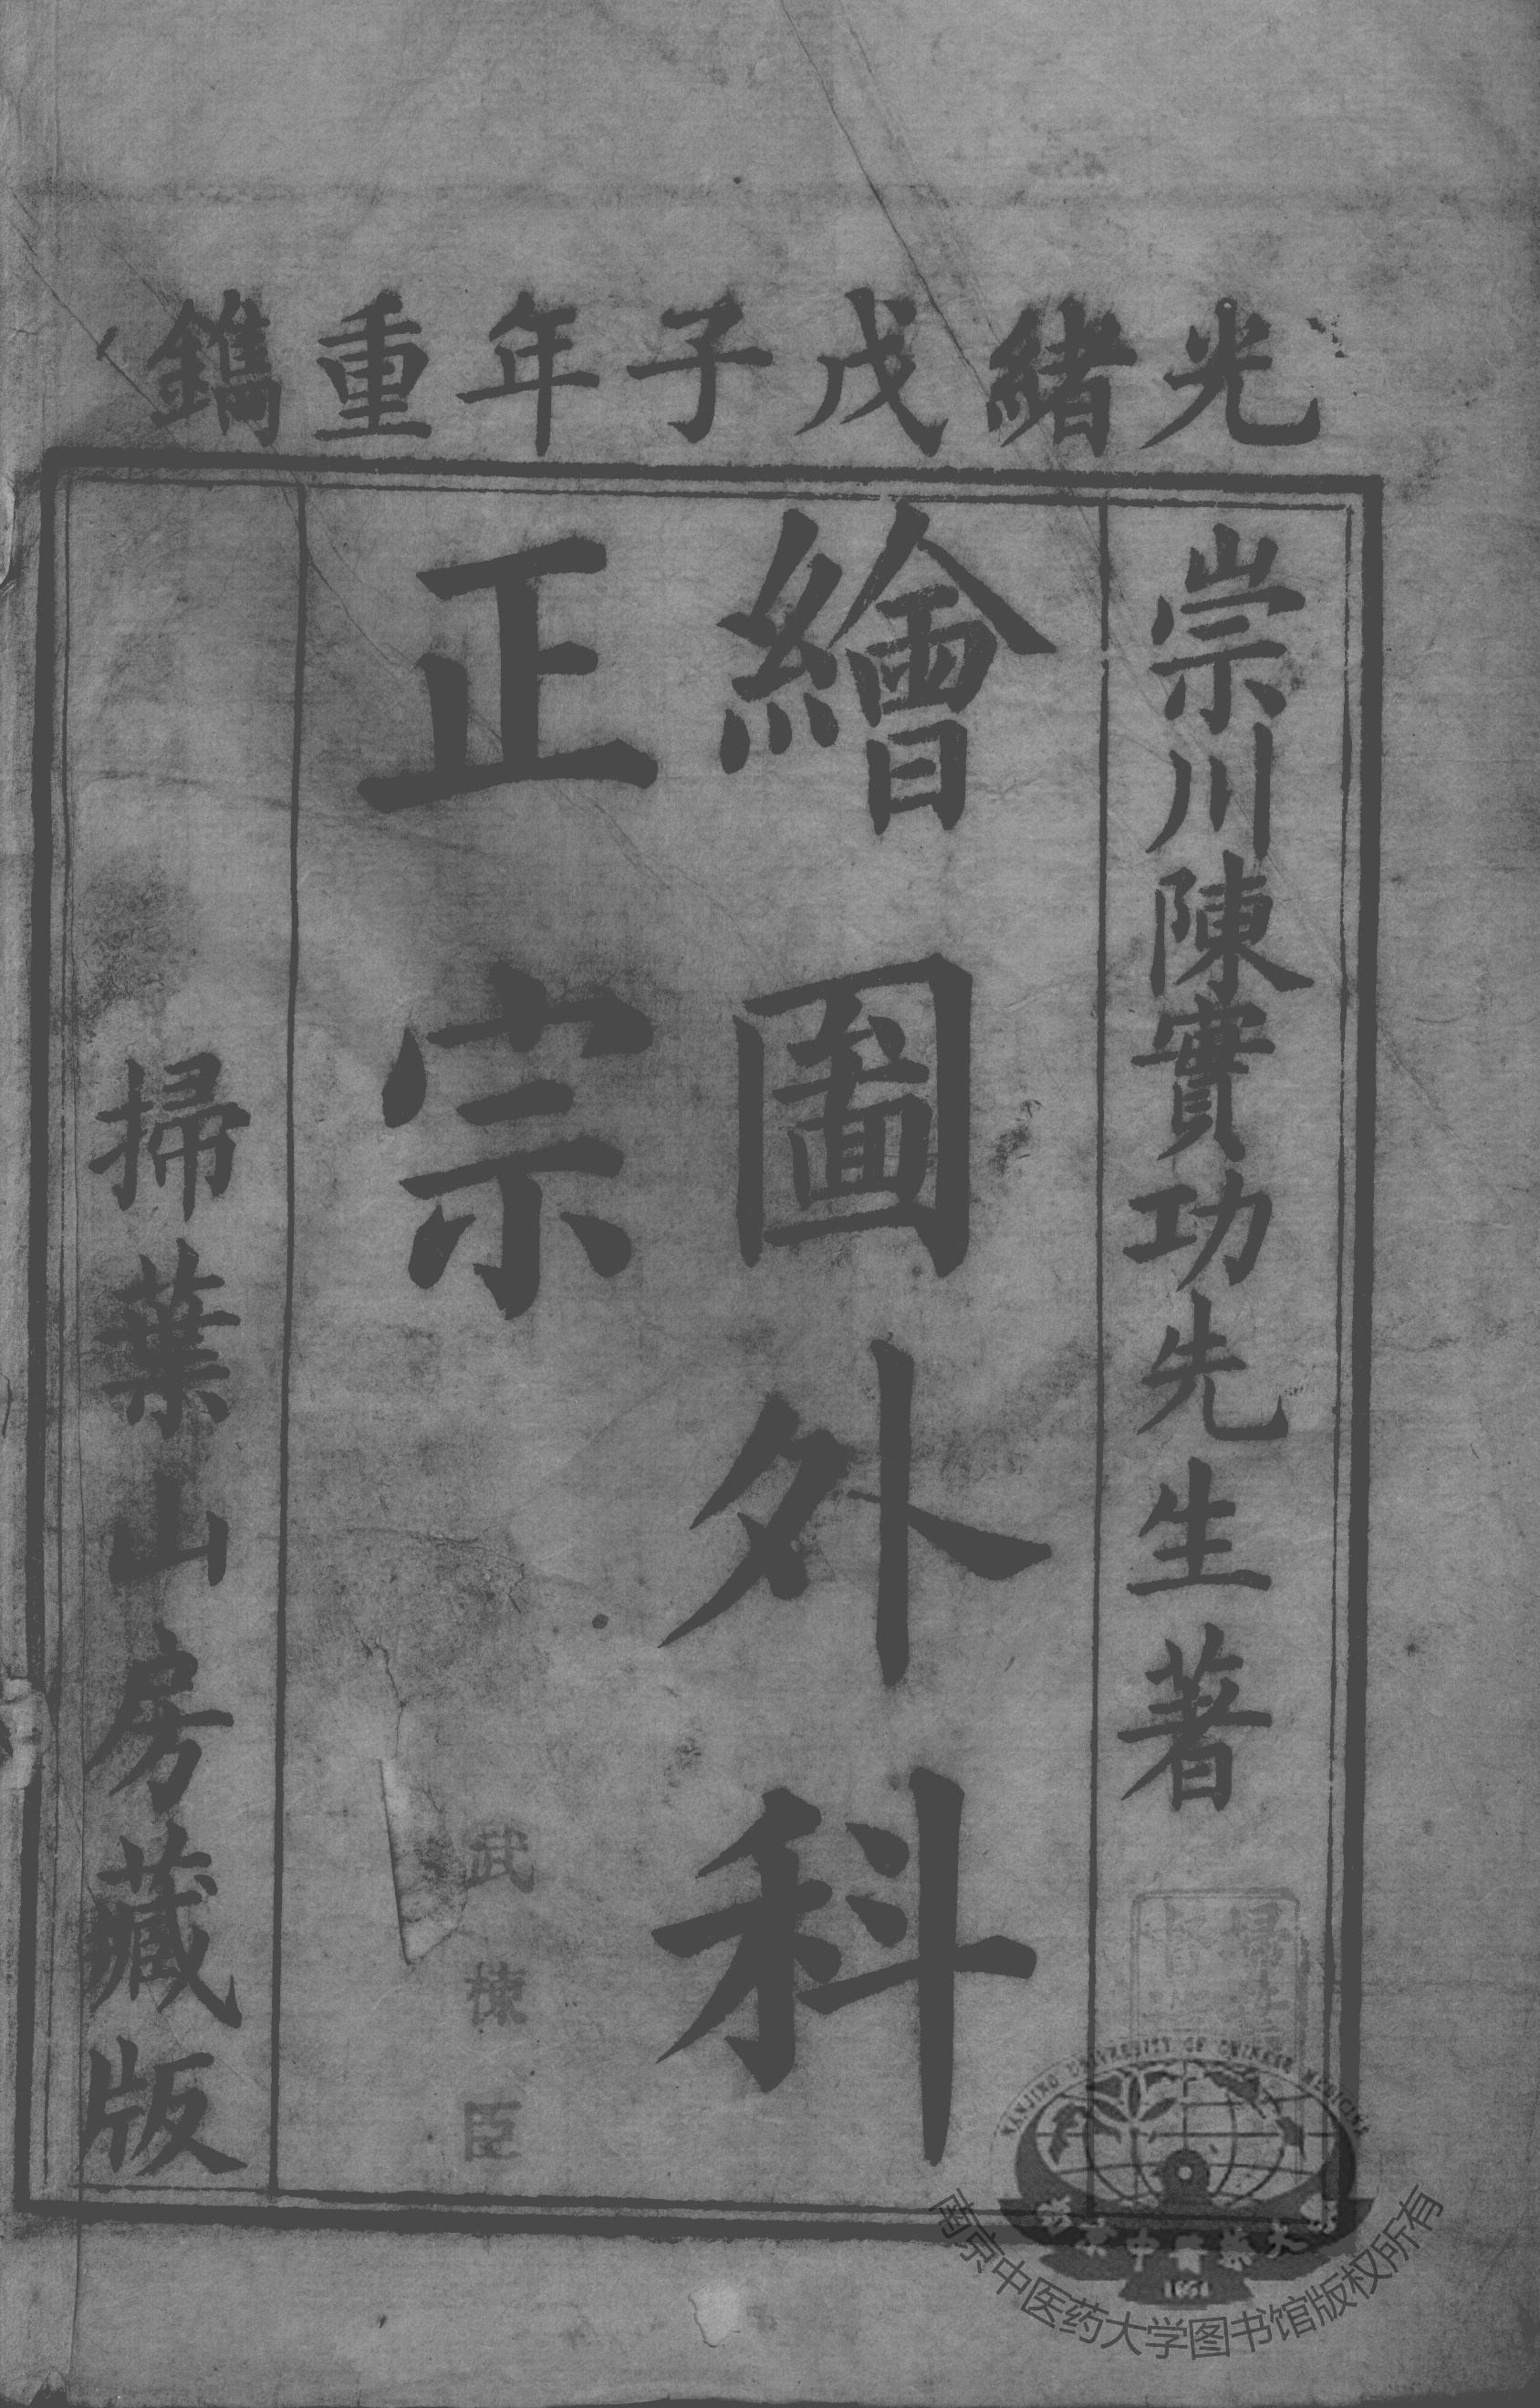 光緒戊子年重鐫
崇川陳實功先生著
繪圖外科
正宗
掃葉山房藏版
武棟臣
NANJING UNIVERSITY OF CHINESE MEDICINE
南京中醫藥大學
1954
南京中医药大学图书馆版权所有